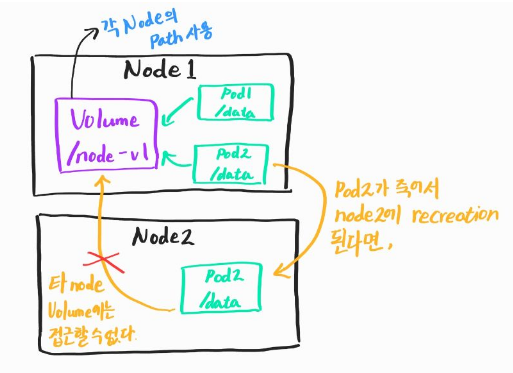 각 Node의
Path 사용
Node1
Volume
/node-v1
Pod1
/data
Pod2
/data
Pod2가 죽어서
node2에 recreation
된다면,
Node2
Pod2
/data
타 node
Volume에는
접근할 수 없다.